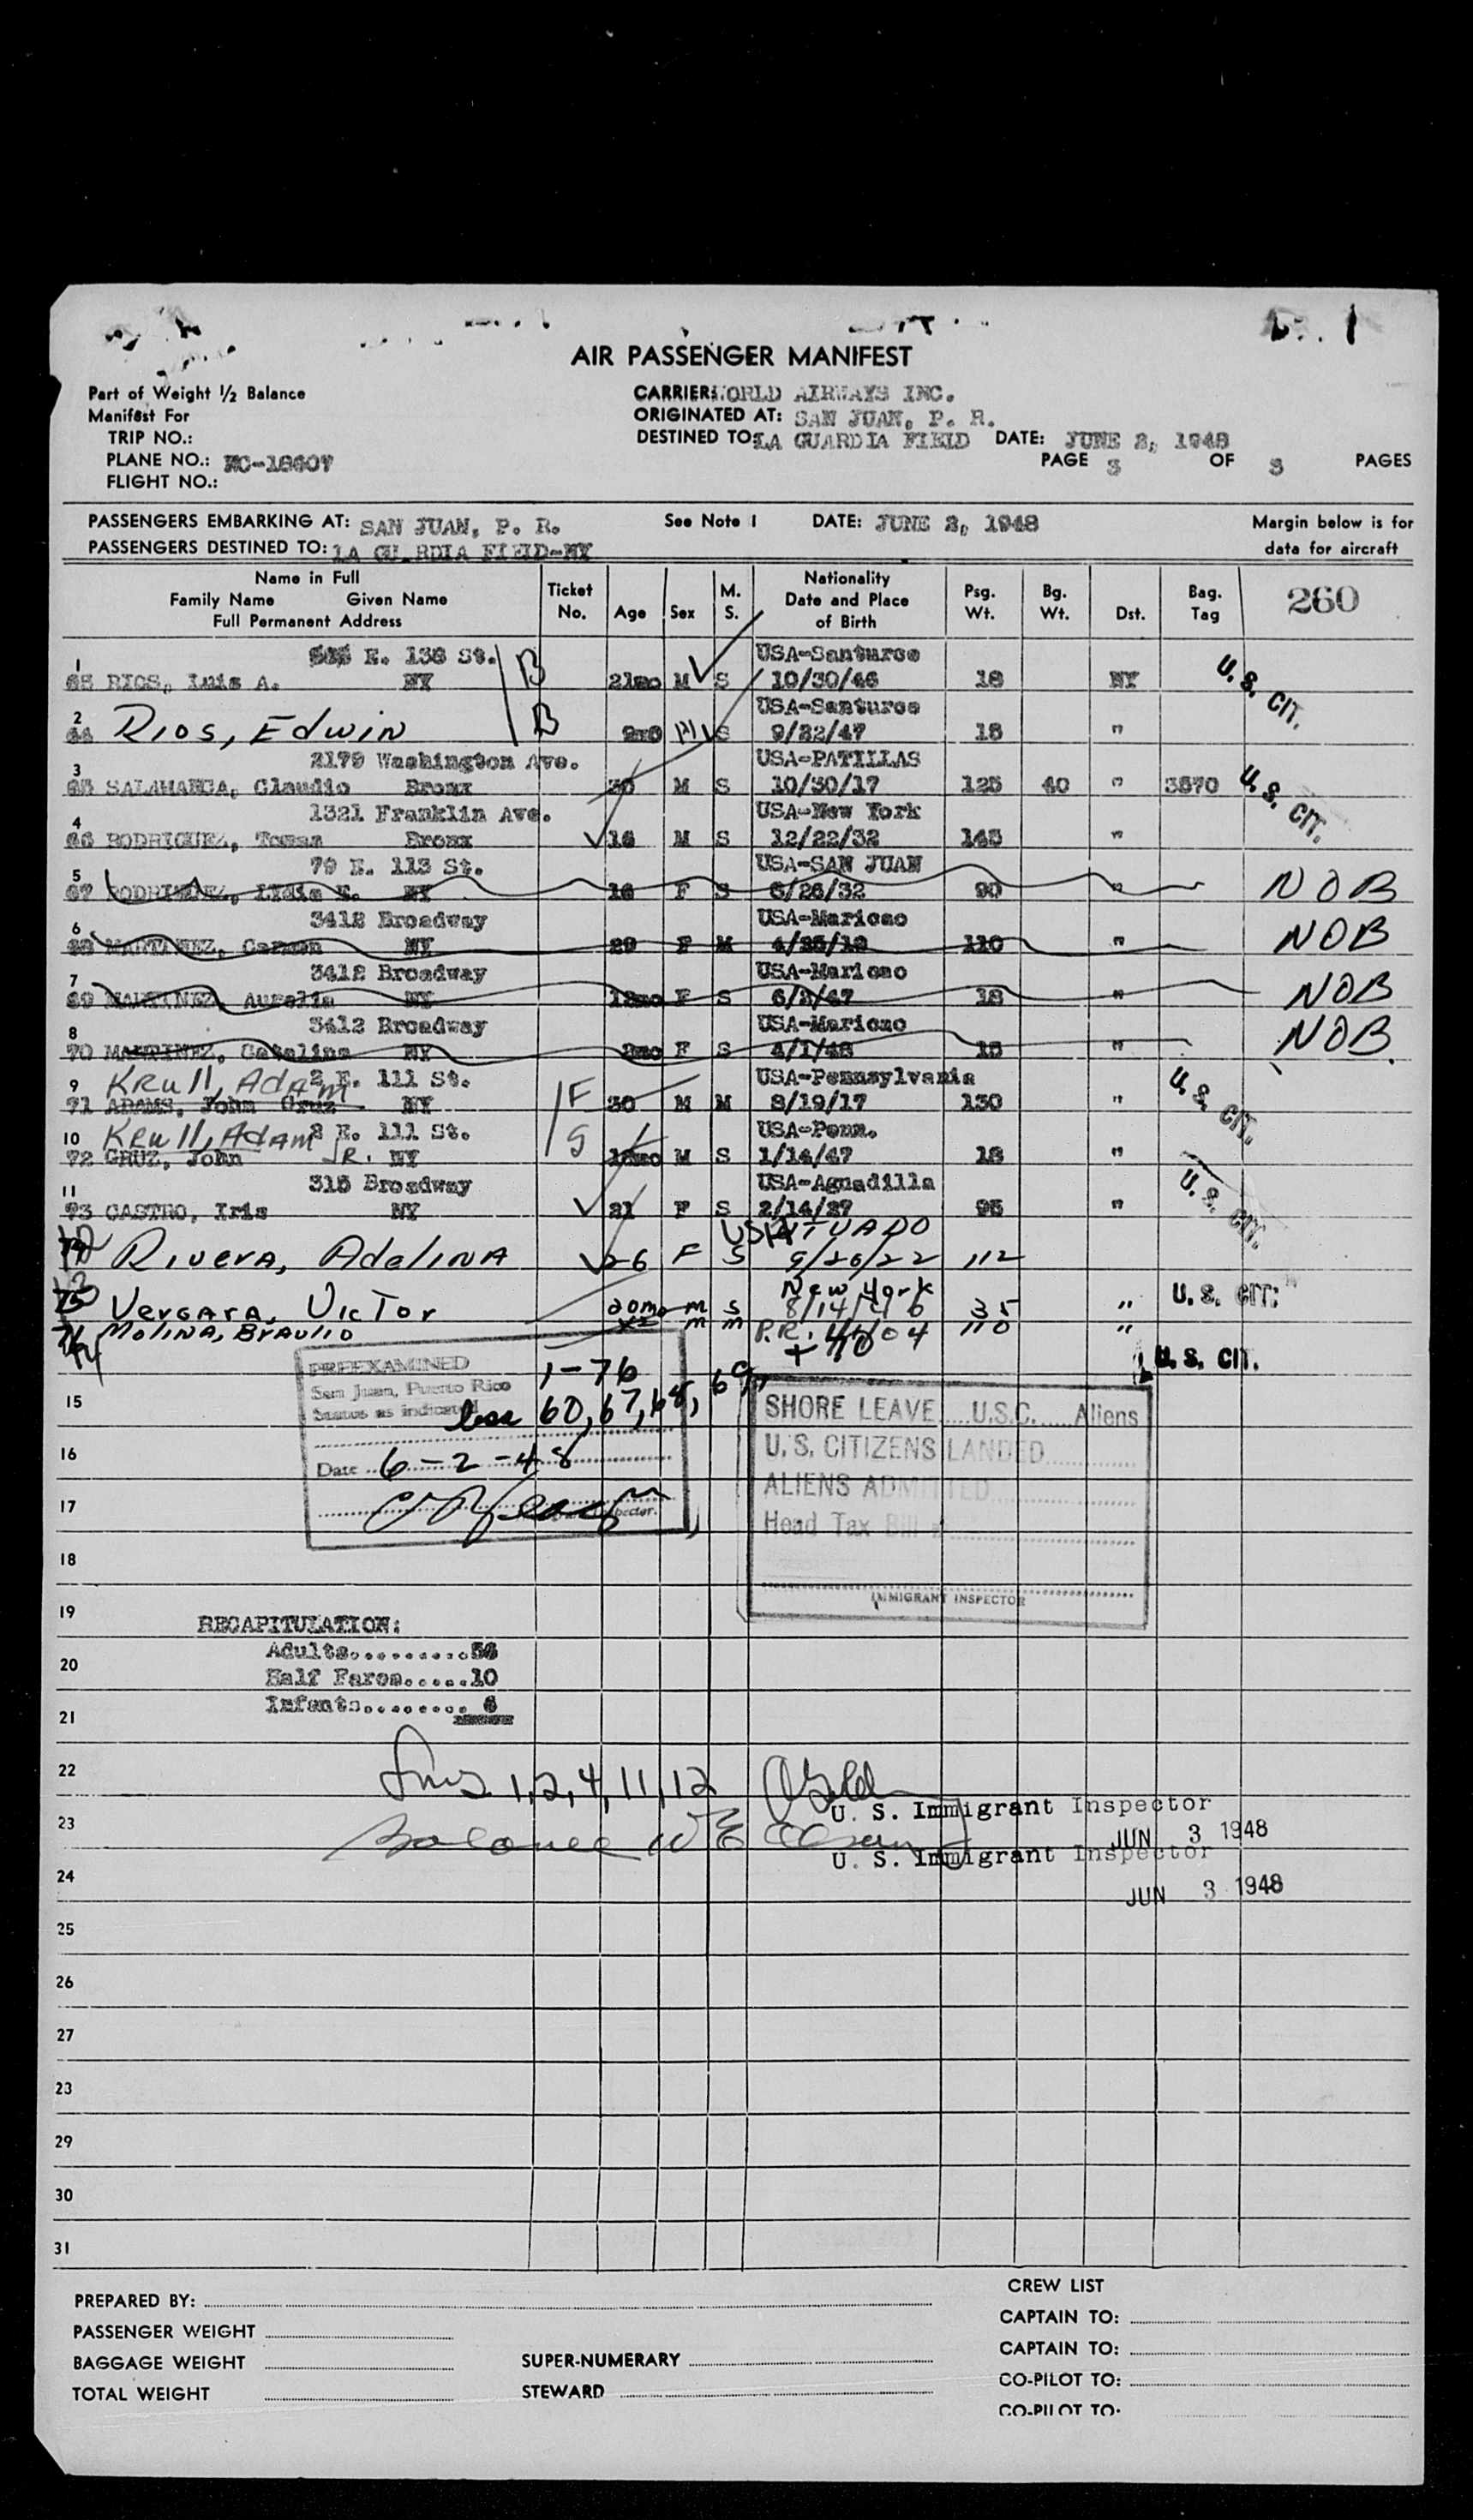 AIR PASSENGER MANIFEST
Part of Weight ½ Balance
Manifest For
TRIP NO.:
PLANE NO.: NC-18607
FLIGHT NO.:
CARRIER: WORLD AIRWAYS INC.
ORIGINATED AT: SAN JUAN, P. R.
DESTINED TO: LA GUARDIA FIELD DATE: JUNE 2, 1948
PAGE 3 OF 3 PAGES
PASSENGERS EMBARKING AT: SAN JUAN, P. R. See Note 1 DATE: JUNE 2, 1948
PASSENGERS DESTINED TO: LA GUARDIA FIELD-NY
Margin below is for
data for aircraft
Name in Full
Family Name Given Name
Full Permanent Address
Ticket No. Age Sex M. S. Nationality Date and Place of Birth Psg. Wt. Bg. Wt. Dst. Bag. Tag 260
1 E. 138 St. USA-Santurce
RIOS, Luis A. NY B 21mo M S 10/30/46 18 NY U. S. CIT.
2 USA-Santurce
RIOS, EDWIN B M S 9/22/47 18 "
3 2179 Washington Ave. USA-PATILLAS
65 SALAMANCA, Claudio Bronx 30 M S 10/30/17 125 40 " 3570 U. S. CIT.
4 1321 Franklin Ave. USA-New York
66 RODRIGUEZ, Tomas Bronx 16 M S 12/22/32 145 "
5 79 E. 113 St. USA-SAN JUAN
67 RODRIGUEZ, Lidia E. NY 16 F S 6/26/32 90 " NOB
6 3412 Broadway USA-Maricao
68 MARTINEZ, Carmen NY 29 F M 110 " NOB
7 3412 Broadway USA-Maricao
69 MARTINEZ, Aurelia NY 12mo F S 6/2/47 18 " NOB
8 3412 Broadway USA-Maricao
70 MARTINEZ, Catalina NY 2mo F S 4/1/48 15 " NOB
9 KRUll, ADAM 2 E. 111 St. USA-Pennsylvania
71 ADAMS, John Cruz NY F 30 M M 8/19/17 130 " U. S. CIT.
10 KRUll, ADAM JR. 2 E. 111 St. USA-Penn.
72 CRUZ, John NY G M S 1/14/47 18 "
11 315 Broadway USA-Aguadilla
73 CASTRO, Iris NY 21 F S 2/14/27 95 " U. S. CIT.
USA UTUADO
12 RIVERA, AdelINA 26 F S 9/26/22 112
New York
13 VERGARA, VICTOR 20mo m s 8/14/46 35 " U. S. CIT.
14 MOLINA, BRAULIO m m P.R. 110 "
U. S. CIT.
PREEXAMINED
San Juan, Puerto Rico
Status as indicated
1-76
less 60, 67, 68, 69,
Date 6-2-48
SHORE LEAVE U.S.C. Aliens
U. S. CITIZENS LANDED
ALIENS ADMITTED
Head Tax Bill #
IMMIGRANT INSPECTOR
15
16
17
18
19
RECAPITULATION:
Adults..........56
20
Half Fares.....10
Infants......... 6
21
22 1, 2, 4, 11, 12
U. S. Immigrant Inspector
23 Balance
JUN 3 1948
U. S. Immigrant Inspector
24
JUN 3 1948
25
26
27
23
29
30
31
PREPARED BY:
PASSENGER WEIGHT
BAGGAGE WEIGHT
TOTAL WEIGHT
SUPER-NUMERARY
STEWARD
CREW LIST
CAPTAIN TO:
CAPTAIN TO:
CO-PILOT TO:
CO-PILOT TO: